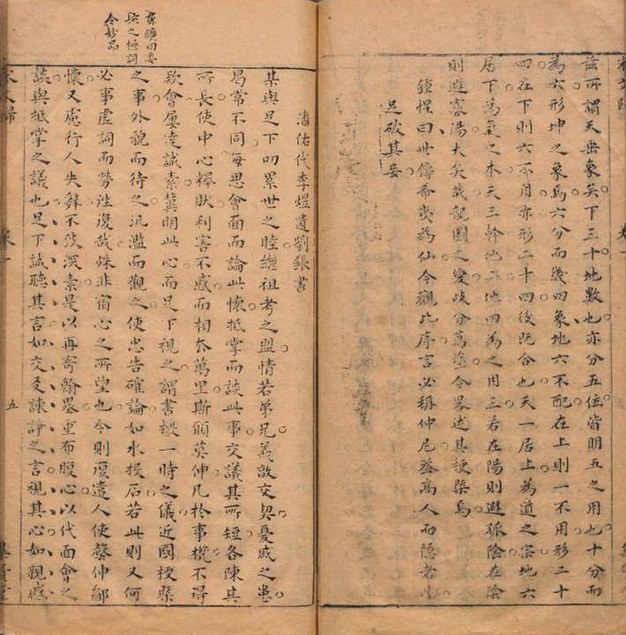 茲所謂天垂象矣下三十地數也亦分五位皆明五之用也十分而
為六形坤之象焉六分而幾四象地六不配在上則一不用形二十
四在下則六不用亦形二十四後既合也天一居上為道之宗地六
居下為氣之本天三幹地二地四為之用三若在陽則避孤陰在陰
則避寡陽大矣哉龍圖之變歧分萬途今畧述其梗槩焉
鍾惺曰世傳希夷為仙今觀此序言必稱仲尼葢高人而隱者也
足破其妄
曰委
之極詞
令妙品
潘佑代李煜遺劉鋹書
某與足下叨累世之睦繼祖考之盟情若弟兄義敦交契憂戚之患
曷常不同每思會面而論此懷抵掌而談此事交議其所短各陳其
所長使中心釋然利害不惑而相去萬里斯願莫伸凡於事機不得
欵會屢達誠素冀明此心而足下視之謂書檄一時之儀近國梗槩
之事外貌而待之汎濫而觀之使忠告確論如水投石若此則又何
必事虛詞而勞往復哉殊非宿心之所望也今則復遣人使罄申鄙
懷又慮行人失辭不盡深素是以再寄翰墨重布腹心以代面會之
談與抵掌之議也足下誠聽其言如交友諫諍之言視其心如親戚
五